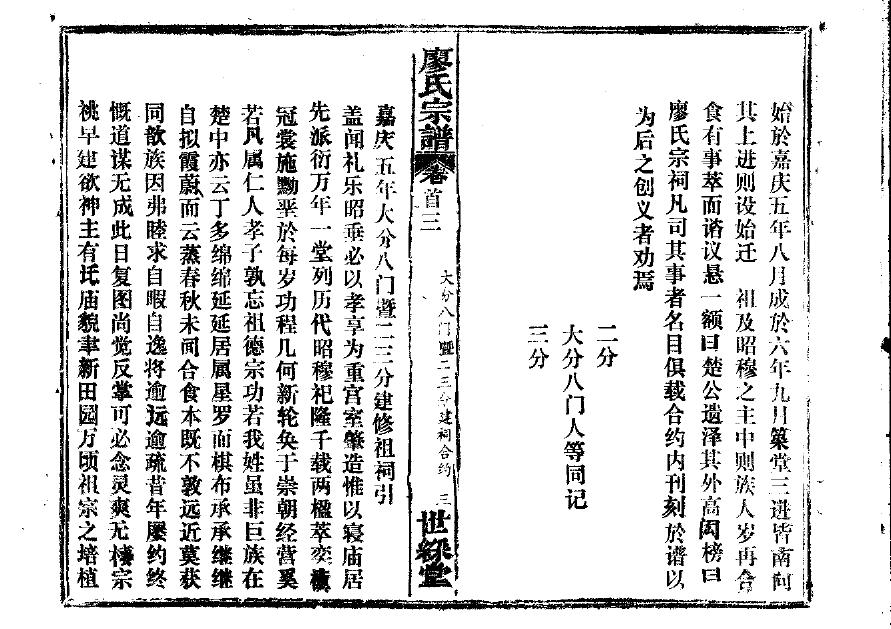 始於嘉庆五年八月成於六年九月築堂三进皆南向
其上进则设始迁 祖及昭穆之主中则族人岁再合
食有事萃而谘议悬一额曰楚公遗泽其外高闳榜曰
廖氏宗祠凡司其事者名目俱载合约内刊刻於谱以
为后之创义者劝焉
二分
大分八门人等同记
三分
廖氏宗譜 卷首三
大分八门暨二三分建祠合约 三
世綵堂
嘉庆五年大分八门暨二三分建修祖祠引
盖闻礼乐昭垂必以孝享为重宫室肇造惟以寝庙居
先派衍万年一堂列历代昭穆祀隆千载两楹萃奕禩
冠裳施黝垩於每岁功程几何新轮奂于崇朝经营奚
若凡属仁人孝子孰忘祖德宗功若我姓虽非巨族在
楚中亦云丁多绵绵延延居属星罗而棋布承承继继
自拟霞蔚而云蒸春秋未间合食本既不敦远近莫获
同歆族因弗睦求自暇自逸将逾远逾疏昔年屡约终
慨道谋无成此日复图尚觉反掌可必念灵爽无棲宗
祧早建欲神主有托庙貌聿新田园万顷祖宗之培植